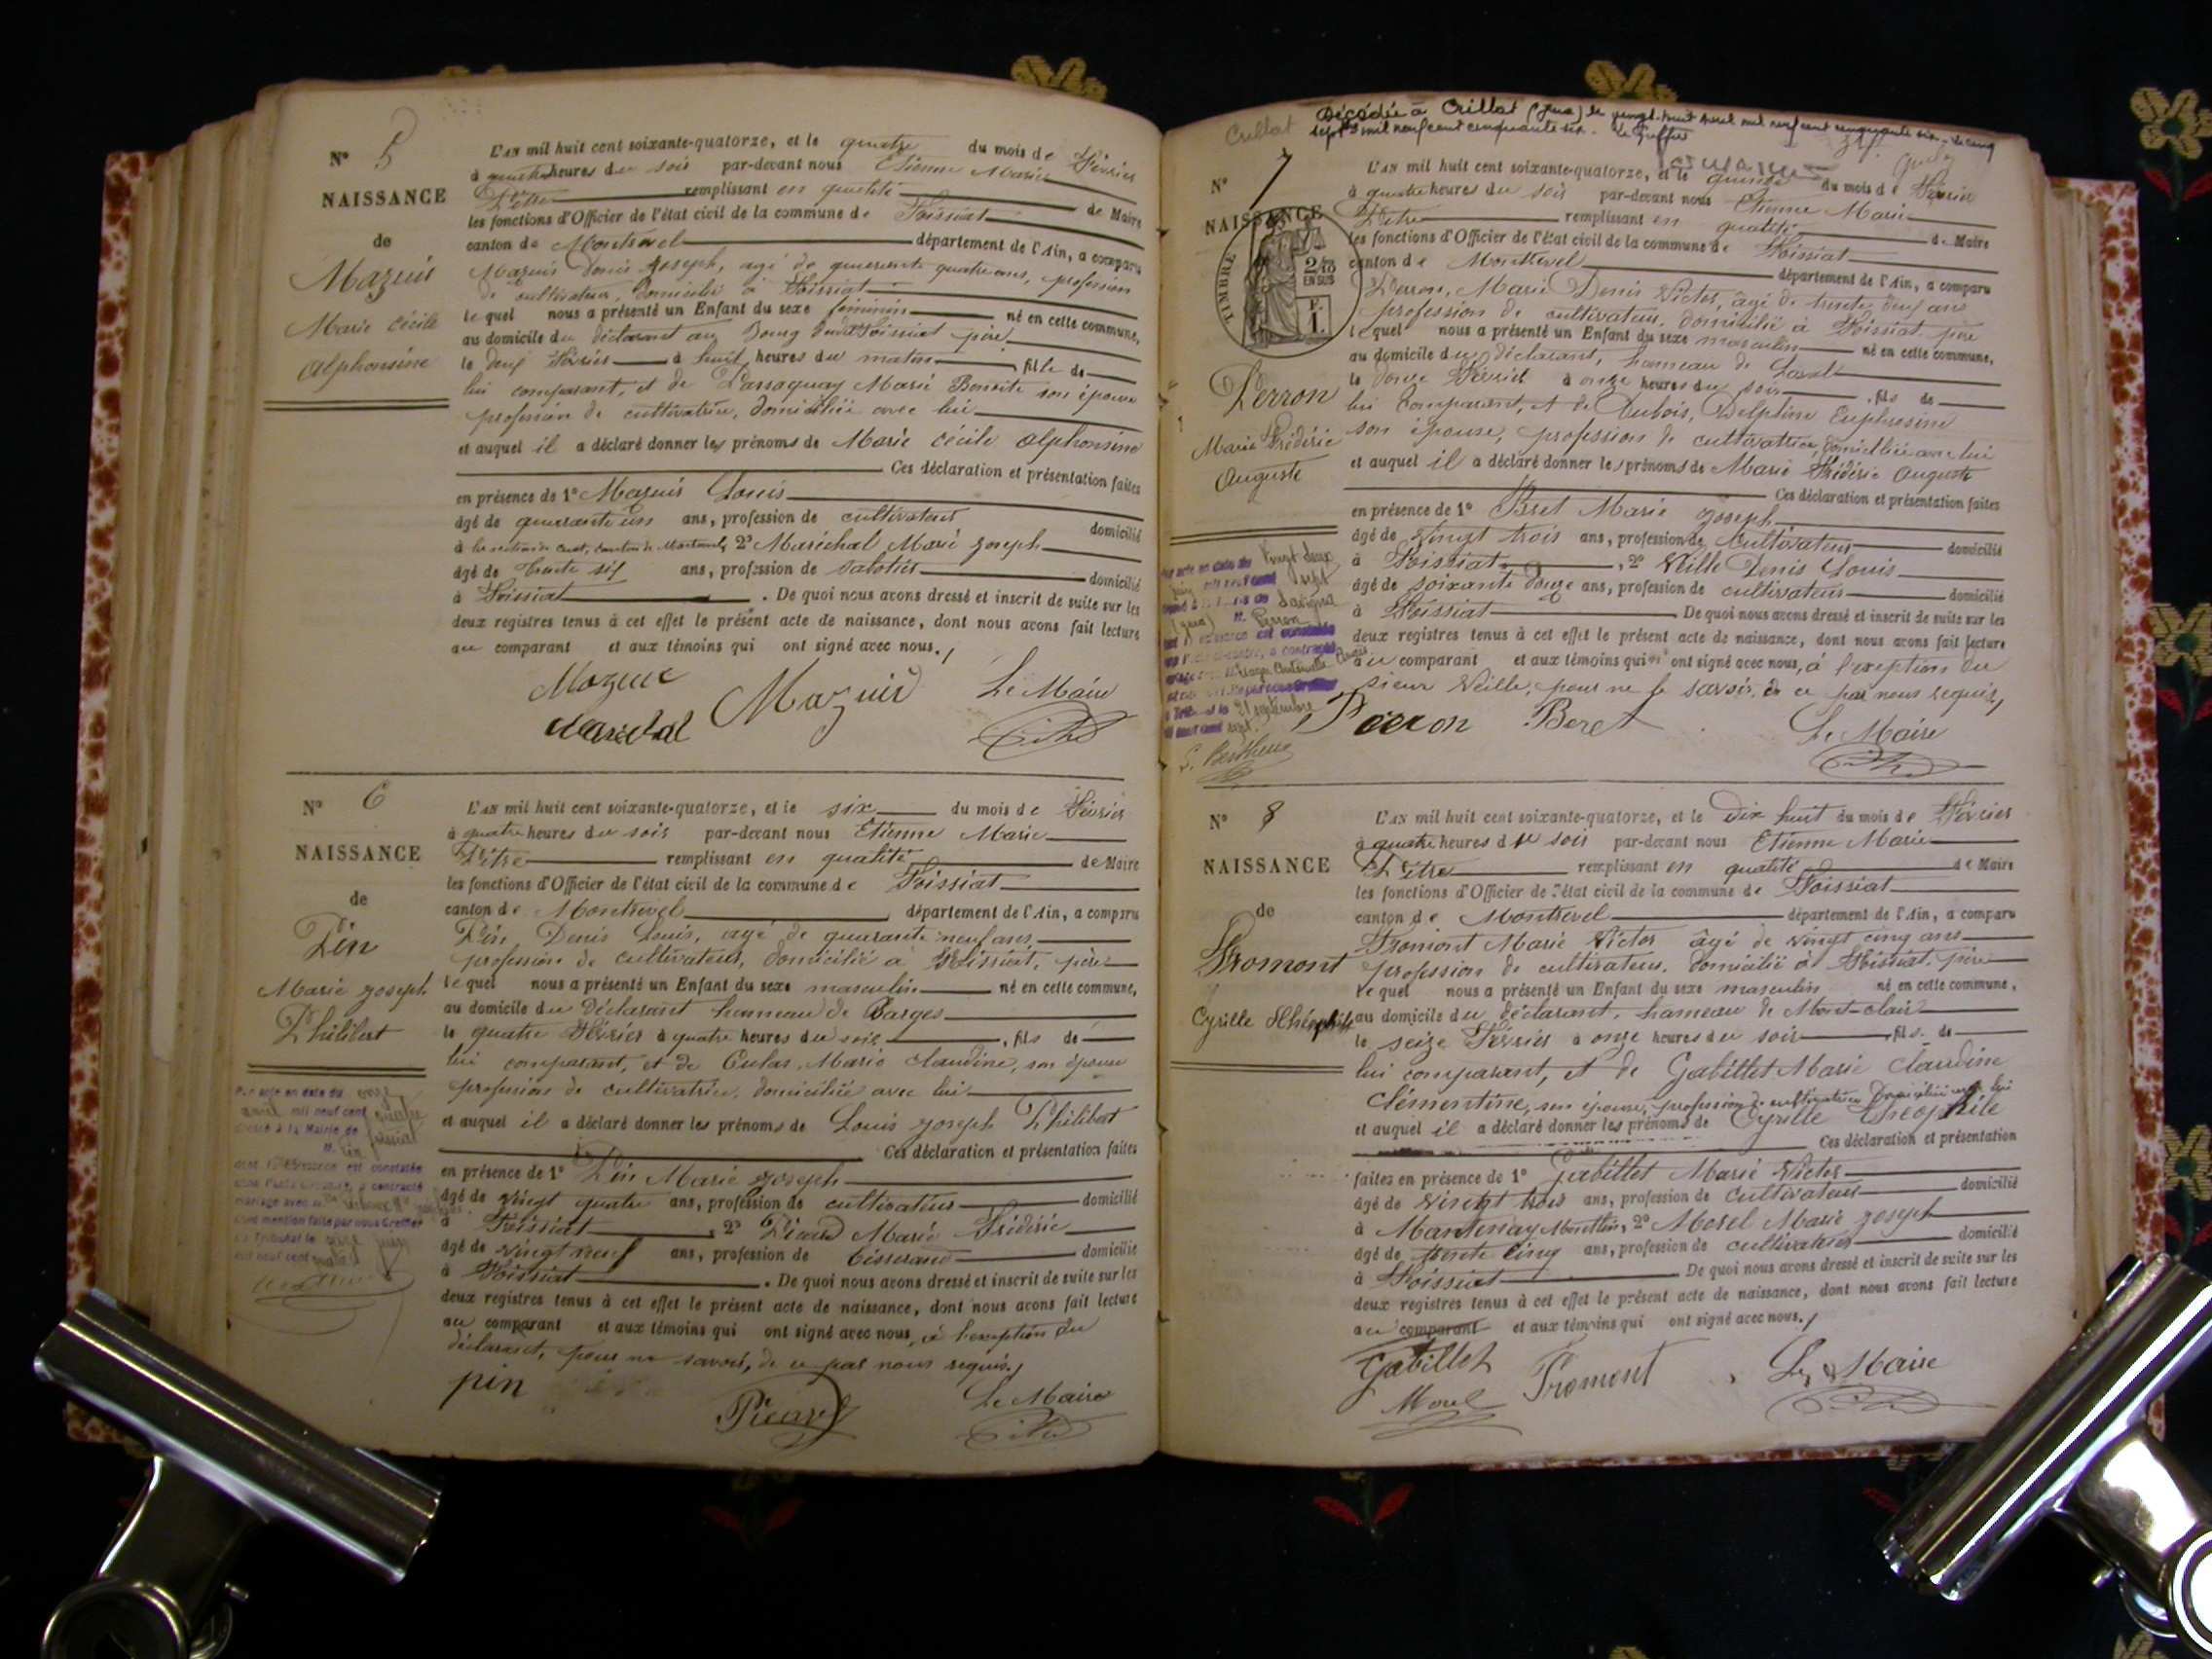 N° 5
NAISSANCE
de
Mazuis
Marie Cécile
Alphonsine
L'AN mil huit cent soixante-quatorze, et le quatre du mois de Février
à quatre heures du soir par-devant nous Etienne Marie
remplissant en qualité de Maire
les fonctions d'Officier de l'état civil de la commune de Foissiat
canton de Montrevel département de l'Ain, a comparu
Mazuis Denis Joseph, agé de quarante quatre ans, profession
de cultivateur, domicilié à Foissiat
lequel nous a présenté un Enfant du sexe féminin né en cette commune,
au domicile du déclarant au Bourg de Foissiat père
le deux Février à huit heures du matin fille de
lui comparant, et de Marie Benoite son épouse
profession de cultivatrice, domiciliée avec lui
et auquel il a déclaré donner les prénoms de Marie Cécile Alphonsine
Ces déclaration et présentation faites
en présence de 1° Mazuis Louis
âgé de quarante un ans, profession de cultivateur domicilié
à 2° Maréchal Marie Joseph
âgé de trente six ans, profession de sabotier domicilié
à Foissiat. De quoi nous avons dressé et inscrit de suite sur les
deux registres tenus à cet effet le présent acte de naissance, dont nous avons fait lecture
au comparant et aux témoins qui ont signé avec nous.
Mazuis Mazuis Le Maire
Marechal
N° 6
NAISSANCE
de
Pin
Marie Joseph
Philibert
Par acte en date du onze
avril mil neuf cent
dressé à la Mairie de Foissiat
M. Pin
dont la naissance est constatée
dans l'acte ci-contre, a contracté
mariage avec
dont mention faite par nous Greffier
du Tribunal le
mil neuf cent
L'AN mil huit cent soixante-quatorze, et le six du mois de Février
à quatre heures du soir par-devant nous Etienne Marie
remplissant en qualité de Maire
les fonctions d'Officier de l'état civil de la commune de Foissiat
canton de Montrevel département de l'Ain, a comparu
Pin Denis Louis, agé de quarante neuf ans,
profession de cultivateur, domicilié à Foissiat, père
lequel nous a présenté un Enfant du sexe masculin né en cette commune,
au domicile du déclarant hameau de Barges
le quatre Février à quatre heures du soir, fils de
lui comparant, et de Marie Claudine, son épouse
profession de cultivatrice, domiciliée avec lui
et auquel il a déclaré donner les prénoms de Louis Joseph Philibert
Ces déclaration et présentation faites
en présence de 1° Pin Marie Joseph
âgé de vingt quatre ans, profession de cultivateur domicilié
à Foissiat, 2° Picard Marie Frédéric
âgé de vingt neuf ans, profession de tisserand domicilié
à Foissiat. De quoi nous avons dressé et inscrit de suite sur les
deux registres tenus à cet effet le présent acte de naissance, dont nous avons fait lecture
au comparant et aux témoins qui ont signé avec nous, à l'exception du
déclarant, pour ne savoir, de ce par nous requis.
pin Picard Le Maire
Crillat
Décédée à Crillat (Jura) le vingt-huit avril mil neuf cent cinquante six. - Le cinq
sept mil neuf cent cinquante six. Le Greffier
N° 7
NAISSANCE
TIMBRE
2/10
EN SUS
F.
1.
Perron
Marie Frédéric
Auguste
L'AN mil huit cent soixante-quatorze, et le quinze du mois de Février
à quatre heures du soir par-devant nous Etienne Marie
remplissant en qualité de Maire
les fonctions d'Officier de l'état civil de la commune de Foissiat
canton de Montrevel département de l'Ain, a comparu
Perron, Marie Denis Victor, âgé de trente deux ans
profession de cultivateur, domicilié à Foissiat père
lequel nous a présenté un Enfant du sexe masculin né en cette commune,
au domicile du déclarant, hameau de Laval
le douze Février à onze heures du soir, fils de
lui comparant, et de Dubois, Delphine Euphrosine
son épouse, profession de cultivatrice, domiciliée avec lui
et auquel il a déclaré donner les prénoms de Marie Frédéric Auguste
Ces déclaration et présentation faites
en présence de 1° Beret Marie Joseph
âgé de vingt trois ans, profession de cultivateur domicilié
à Foissiat, 2° Veille Denis Louis
âgé de soixante douze ans, profession de cultivateur domicilié
à Foissiat De quoi nous avons dressé et inscrit de suite sur les
deux registres tenus à cet effet le présent acte de naissance, dont nous avons fait lecture
au comparant et aux témoins qui ont signé avec nous, à l'exception du
sieur Veille, pour ne le savoir, de ce par nous requis,
Perron Beret Le Maire
Par acte en date du vingt deux
juin mil neuf cent sept
(Jura)
M. Perron
dont la naissance est constatée
dans l'acte ci-contre, a contracté
21 septembre
mil neuf cent sept.
N° 8
NAISSANCE
de
Fromont
Cyrille Théophile
L'AN mil huit cent soixante-quatorze, et le dix huit du mois de Février
à quatre heures du soir par-devant nous Etienne Marie
remplissant en qualité de Maire
les fonctions d'Officier de l'état civil de la commune de Foissiat
canton de Montrevel département de l'Ain, a comparu
Fromont Marie Victor âgé de vingt cinq ans
profession de cultivateur, domicilié à Foissiat, père
lequel nous a présenté un Enfant du sexe masculin né en cette commune,
au domicile du déclarant, hameau de Mont-clair
le seize Février à onze heures du soir, fils de
lui comparant, et de Gabillet Marie Claudine
Clémentine, son épouse, profession de cultivatrice Domiciliée avec lui
et auquel il a déclaré donner les prénoms de Cyrille Théophile
Ces déclaration et présentation
faites en présence de 1° Gabillet Marie Victor
âgé de vingt trois ans, profession de cultivateur domicilié
à Mantenay Montlin, 2° Morel Marie Joseph
âgé de trente cinq ans, profession de cultivateur domicilié
à Foissiat De quoi nous avons dressé et inscrit de suite sur les
deux registres tenus à cet effet le présent acte de naissance, dont nous avons fait lecture
au comparant et aux témoins qui ont signé avec nous.
Gabillet Fromont Le Maire
Morel